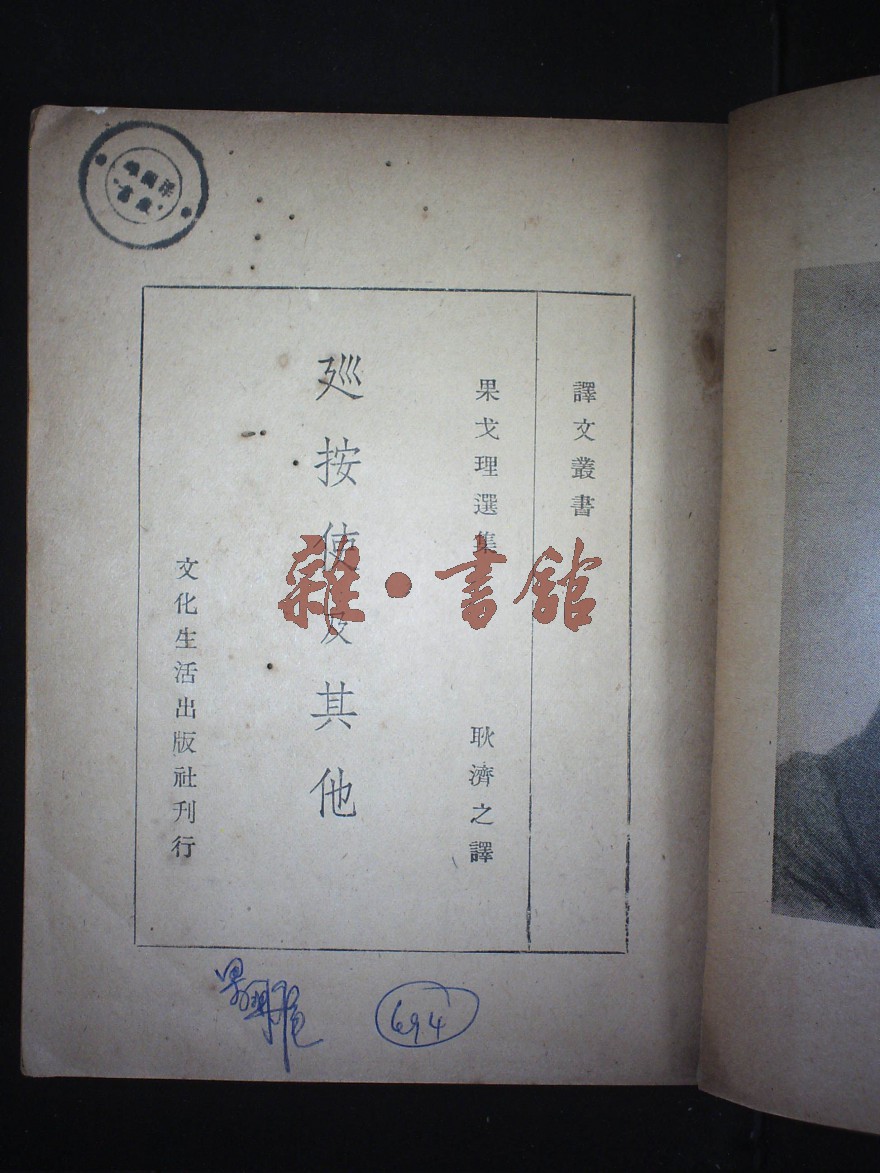 譯文叢書
果戈理選集
耿濟之譯
廵按使及其他
文化生活出版社刊行
雜·書館
694